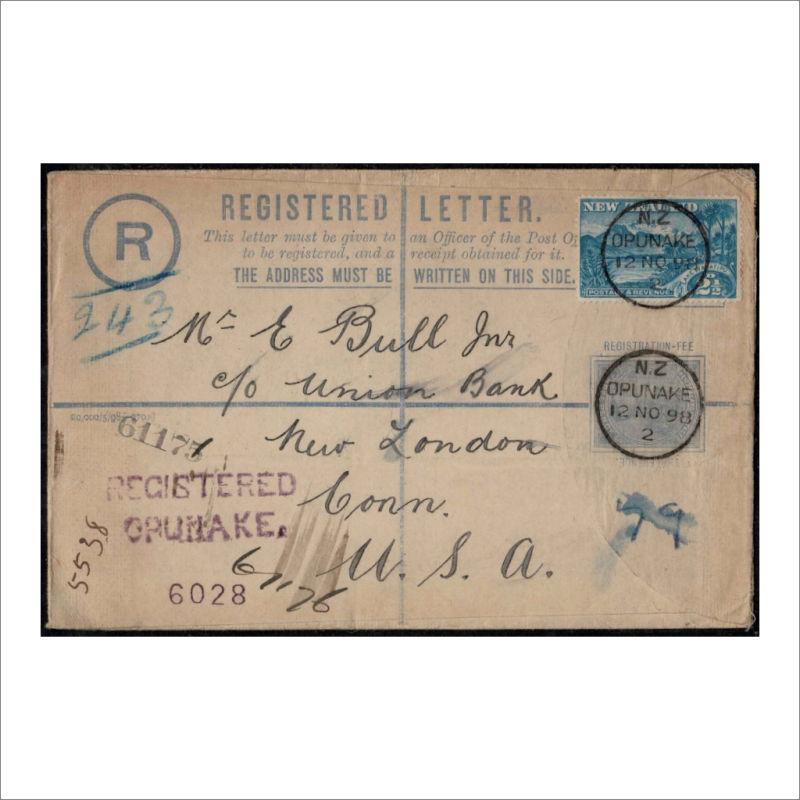 R
REGISTERED LETTER.
This letter must be given to an Officer of the Post
to be registered, and a receipt obtained for it.
THE ADDRESS MUST BE WRITTEN ON THIS SIDE.
NEW ZEALAND
POSTAGE & REVENUE
2½
N.Z
OPUNAKE
12 NO 98
2
243
Mr E Bull Jnr
c/o Union Bank
New London
Conn.
U. S. A.
REGISTRATION-FEE
N.Z
OPUNAKE
12 NO 98
2
61175
REGISTERED
OPUNAKE.
5538
6028
61176
79